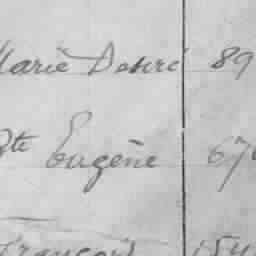 Marie Désiré 89
Bte Eugène 67
François 154